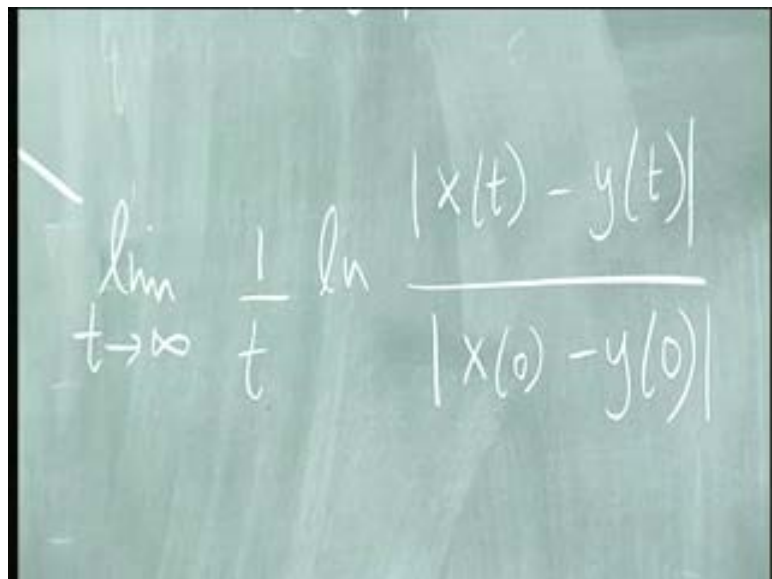 lim t→∞ 1/t ln |x(t) - y(t)| / |x(0) - y(0)|